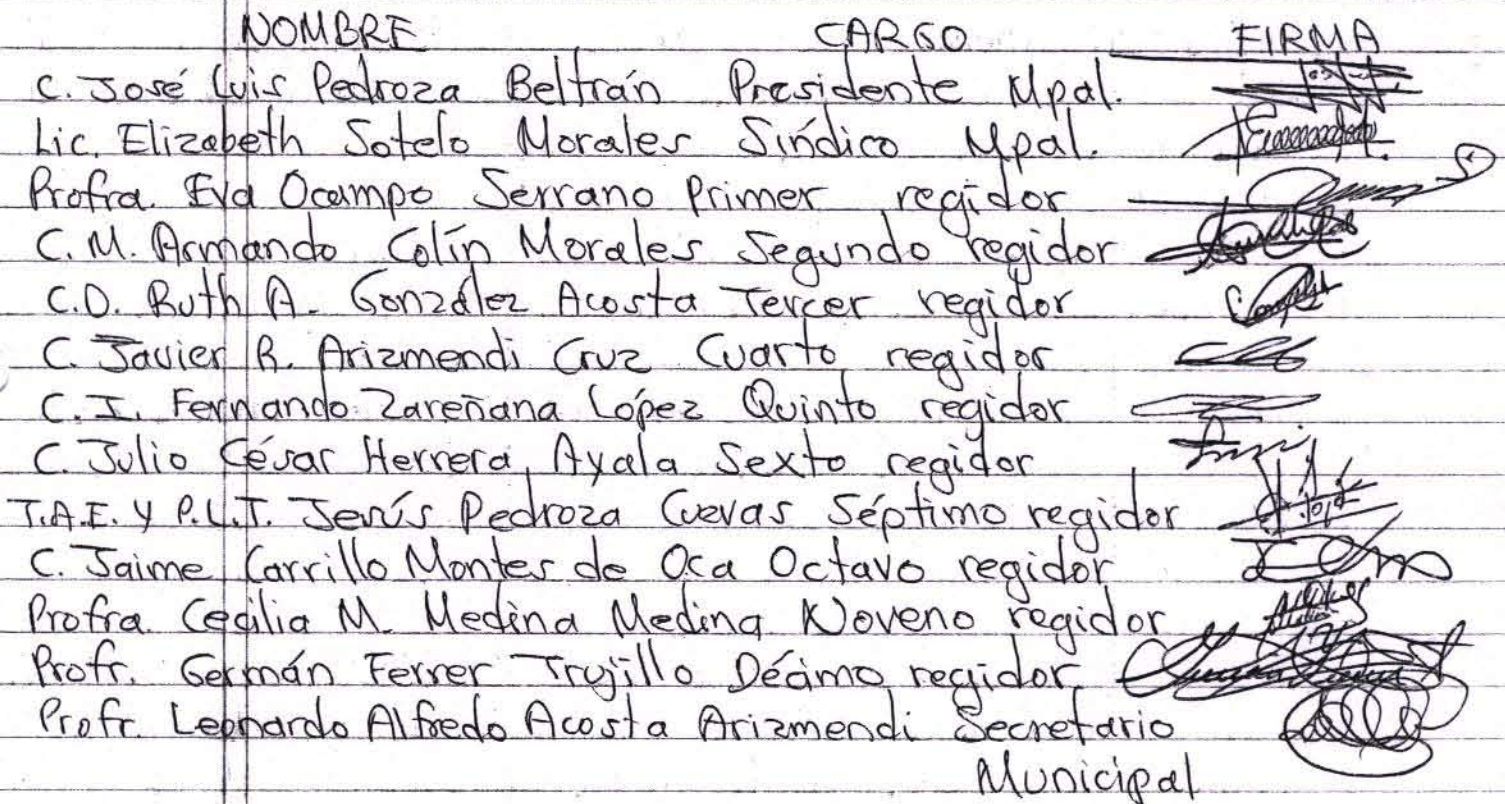 NOMBRE CARGO FIRMA
C. José Luis Pedroza Beltrán Presidente Mpal.
Lic. Elizabeth Sotelo Morales Síndico Mpal.
Profra. Eva Ocampo Serrano Primer regidor
C. M. Armando Colín Morales Segundo regidor
C.D. Ruth A. González Acosta Tercer regidor
C. Javier R. Arizmendi Cruz Cuarto regidor
C. I. Fernando Zareñana López Quinto regidor
C. Julio César Herrera Ayala Sexto regidor
T.A.E. y P.L.T. Jesús Pedroza Cuevas Séptimo regidor
C. Jaime Carrillo Montes de Oca Octavo regidor
Profra. Cecilia M. Medina Medina Noveno regidor
Profr. Germán Ferrer Trujillo Décimo regidor
Profr. Leonardo Alfredo Acosta Arizmendi Secretario
Municipal